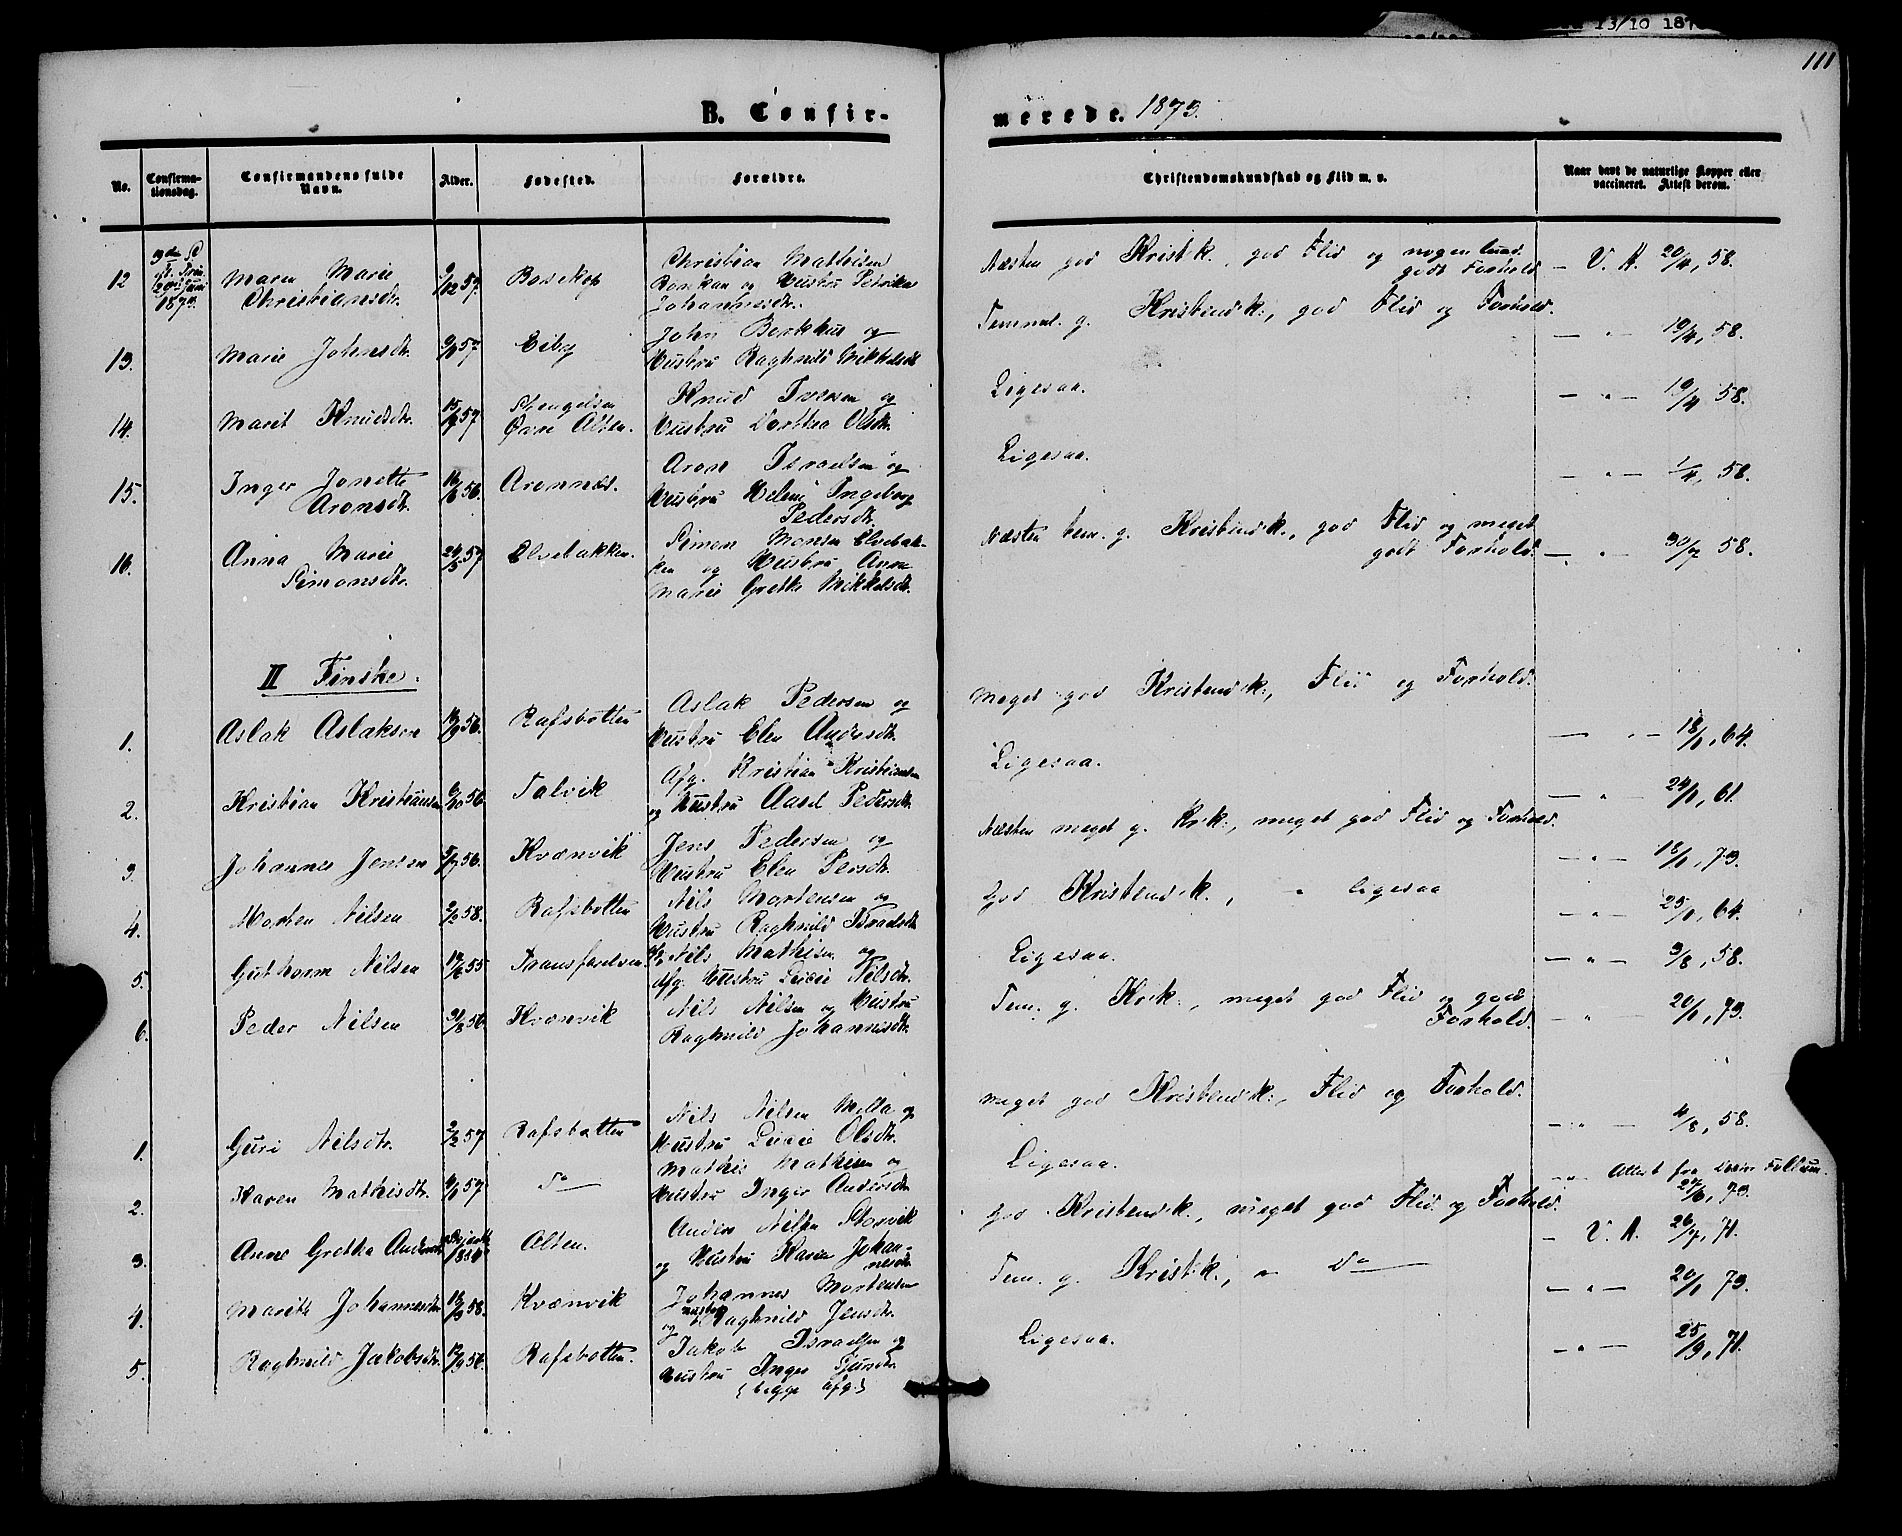 13/10 187
111
B. Confir-
merede. 1873.
No.
Confirma-
tionsdag.
Confirmandens fulde
Navn.
Alder.
Fødested.
Forældre.
Christendomskundskab og Flid m. v.
Naar havt de naturlige Kopper eller
vaccineret. Attest derom.
12
1873.
Maren Marie
Christiansdtr.
9/12 57.
Bosekop
Christian Mathisen
og Hustru Petrika
Johannesdtr.
Næsten god Kristk., god Flid og nogen
godt Forhold.
V. A. 20/4, 58.
13.
Marie Johnsdtr.
57
Eiby
John Berkhus og
Hustru Raghnild Mikkelsdtr.
Temmel. g. Kristendk., god Flid og Forhold.
— " — 19/4, 58.
14.
Marit Knudsdtr.
57
Stengelsen
Øvre Alten.
Knud Iversen og
Hustru Dorthea Olsdtr.
Ligesaa.
— " — 19/4 58.
15.
Inger Jonette
Aronsdtr.
56.
Aronnes.
Aron Israelsen og
Hustru Helene Ingeborg
Pedersdtr.
Ligesaa.
— " — 1/4, 58.
16.
Anna Marie
Simonsdtr.
24/5 57
Elvebakken.
Simon Monsen Elvebak-
ken og Hustru Anne
Marie Grethe Mikkelsdtr.
Næsten tem. g. Kristendk., god Flid og meget
godt Forhold.
— " — 30/7 58.
II Finske.
1.
Aslak Aslaksen
56.
Rafsbotten
Aslak Pedersen og
Hustru Elen Andersdtr.
Meget god Kristendk., Flid og Forhold.
— " — 18/1, 64.
2.
Kristian Kristiansen
6/10 56.
Talvik
Afg. Kristian Kristiansen
og Hustru Aasel Pedersdtr.
Ligesaa.
— " — 24/1, 61.
3.
Johannes Jensen
5/7 56.
Kvænvik
Jens Pedersen og
Hustru Elen Persdtr.
Næsten meget g. Krk., meget god Flid og Forhold.
— " — 18/1, 73.
4.
Morten Nilsen
2/2 58.
Rafsbotten
Nils Mortensen og
Hustru Raghnild Israelsdtr.
god Kristendk., " ligesaa
— " — 25/1, 64.
5.
Guthorm Nilsen
55
Nils Mathisen og
Afg. Hustru Nilsdtr.
Ligesaa.
— " — 3/8, 58.
6.
Peder Nilsen
31/3 56.
Kvænvik
Nils Nilsen og Hustru
Raghnild Johannesdtr.
Tem. g. Krk., meget god Flid og godt
Forhold.
— " — 20/1, 73.
1.
Guri Nilsdtr.
2/2 57
Rafsbotten
Nils Nilsen og
Hustru Olsdtr.
Meget god Kristendk., Flid og Forhold.
— " — 4/8, 58.
2.
Karen Mathisdtr.
57
do —
Mathis Mathisen og
Hustru Inger Andersdtr.
Ligesaa.
— " — Attest fra
73.
3.
Anne Grethe Andersdtr.
Alten.
Anders Nilsen Storvik
og Hustru Karen Johan-
nesdtr.
god Kristendk., meget god Flid og Forhold.
— V. A. 26/7, 71.
4.
Marith Johannesdtr.
18/3 58.
Kvænvik
Johannes Mortensen
og Hustru Raghnild Jensdtr.
Tem. g. Kristk., " do —
— " — 20/1, 73.
5.
Raghnild Jakobsdtr.
56.
Rafsbotten.
Jakob Israelsen og
Hustru Inger
(begge afg.)
Ligesaa.
— " — 25/9, 71.